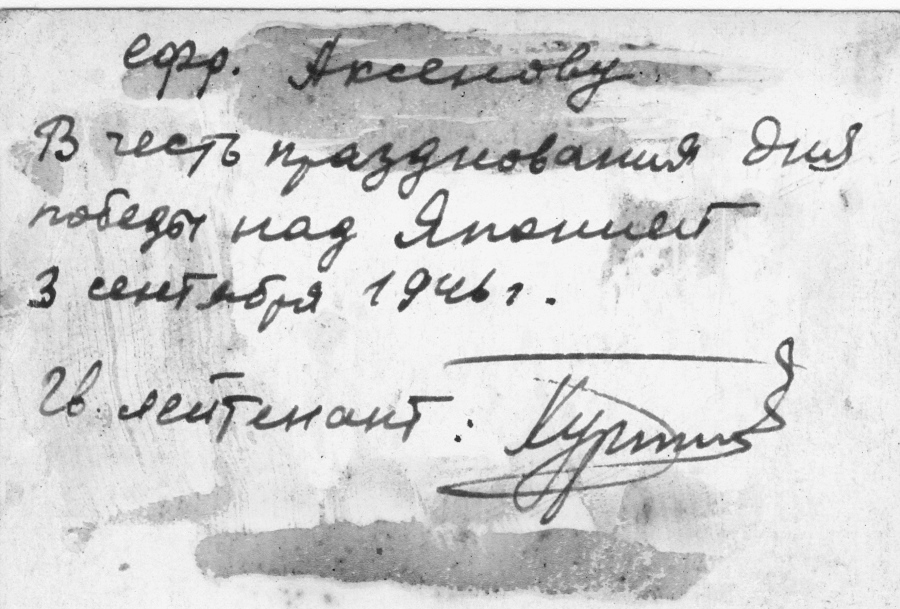 ефр. Аксенову
В честь празднования дня
победы над Японией
3 сентября 1946 г.
Гв. лейтенант: